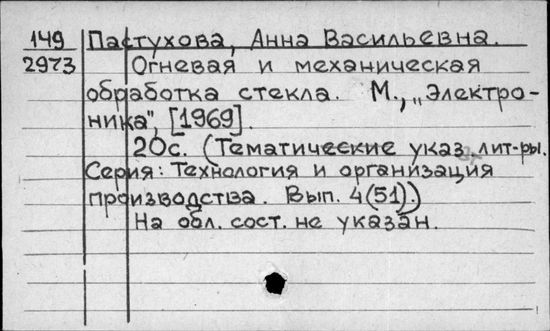 149 Пастухова, Анна Васильевна.
2973 Огневая и механическая
обработка стекла. М., „Электро-
ника", [1969].
20с. (Тематические указ. лит-ры.
Серия: Технология и организация
производства. Вып. 4(51).)
На обл. сост. не указан.